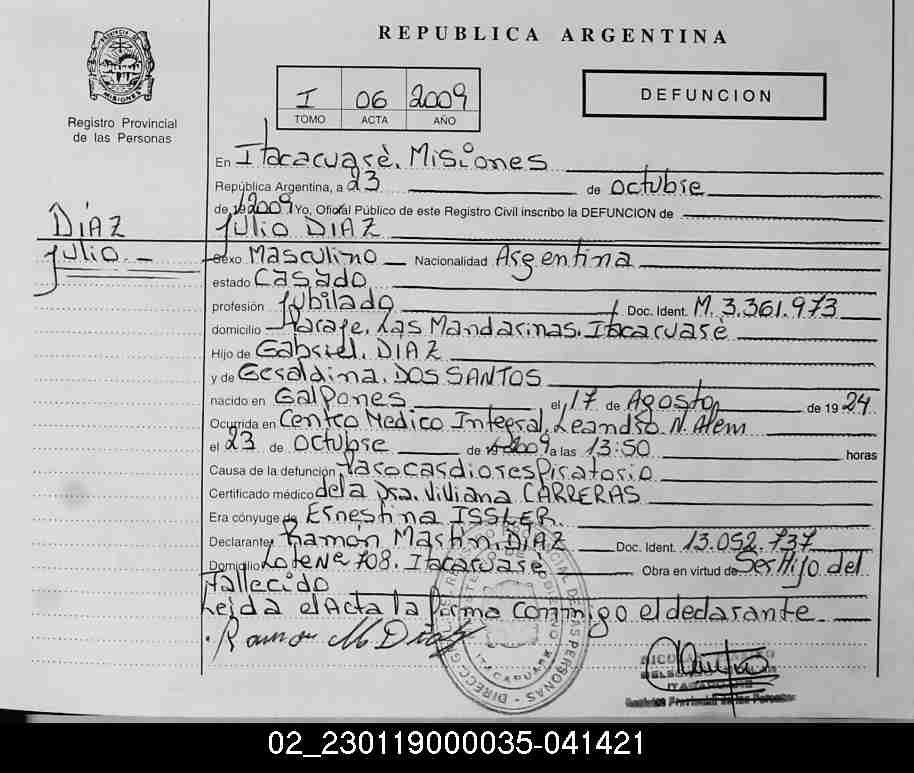 REPUBLICA ARGENTINA
PROVINCIA DE MISIONES
Registro Provincial
de las Personas
I 06 2009
TOMO ACTA AÑO
DEFUNCION
En Itacacuasè. Misiones
República Argentina, a 23 de octubre
de 2009 Yo, Oficial Público de este Registro Civil inscribo la DEFUNCION de
DIAZ
Julio DIAZ
Julio.—
Sexo Masculino Nacionalidad Argentina
estado Casado
profesión Jubilado Doc. Ident. M. 3.361.973
domicilio Paraje. Las Mandarinas. Itacaruasè
Hijo de Gabriel. DIAZ
y de Geraldina. DOS SANTOS
nacido en Galpones el 17 de Agosto de 1924
Ocurrida en Centro Medico Integral. Leandro. N. Alem
el 23 de octubre de 2009 a las 13:50 horas
Causa de la defunción Parocardiorespiratorio
Certificado médico de la Dra. Viviana CARRERAS
Era cónyuge de Ernestina ISSLER.
Declarante Ramón Martin. DIAZ Doc. Ident. 13.052.737
Domicilio Lote Nº 708. Itacaruasè Obra en virtud de Ser Hijo del
Fallecido
Leida el Acta la firma conmigo el declarante
Ramon M Diaz
02_230119000035-041421